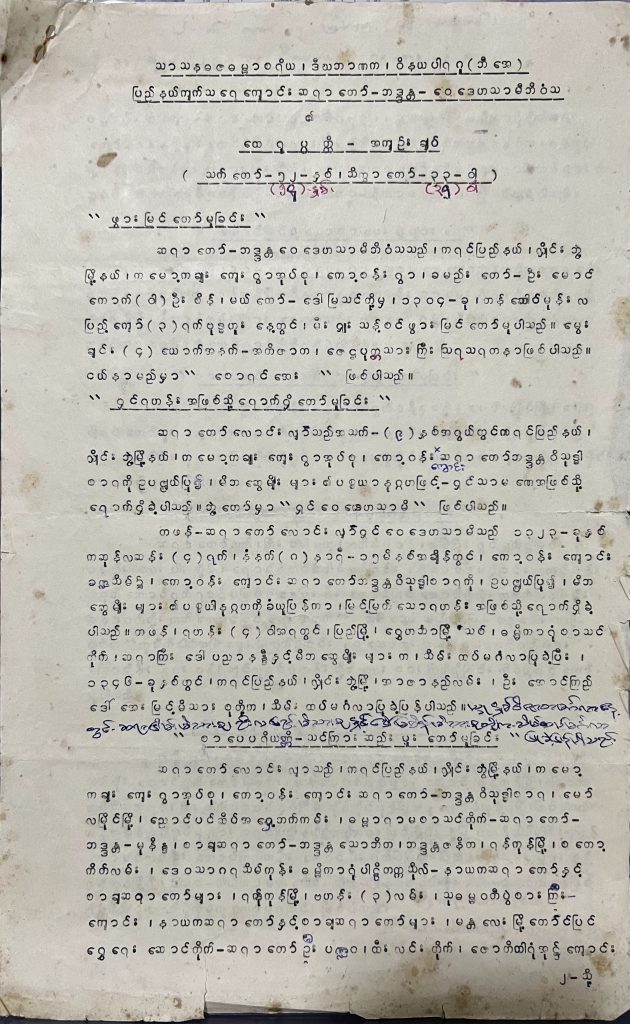 သာသနဓဇဓမ္မာစရိယ၊ ဒီဃဘာဏက၊ ဝိနယပါရဂူ(ဘီအေ)
ပြည်နယ်ကျက်သရေကျောင်းဆရာတော်-ဘဒ္ဒန္တ-ဝေဒေဟသာမီဘိဝံသ
၏
ထေရုပ္ပတ္တိ - အကျဉ်းချုပ်
( သက်တော်-၅၂-နှစ်၊သိက္ခာတော်-၃၃-ဝါ )
" ဖွားမြင်တော်မူခြင်း "
ဆရာတော်-ဘဒ္ဒန္တဝေဒေဟသာမီဘိဝံသသည်၊ကရင်ပြည်နယ်၊လှိုင်းဘွဲ့
မြို့နယ်၊ကမော့ကချူးကျေးရွာအုပ်စု၊ကော့ဝန်းရွာ၊ခမည်းတော်-ဦးမောင်
ကောက်(ခါ)ဦးစိန်၊မယ်တော်-ဒေါ်မြသင်တို့မှ၊၁၃၀၄-ခု၊တန်ဆောင်မုန်းလ
ပြည့်ကျော်(၃)ရက်ဗုဒ္ဓဟူးနေ့တွင်၊မီးရှူးသန့်စင်ဖွားမြင်တော်မူပါသည်။မွေး
ချင်း(၄)ယောက်အနက်-အကိဇာက၊ဇေဋ္ဌပုတ္တသားကြီးဩရသရတနာဖြစ်ပါသည်။
ငယ်နာမည်မှာ " စောရင်အေး " ဖြစ်ပါသည်။
" ရှင်ရဟန်းအဖြစ်သို့ရောက်ရှိတော်မူခြင်း "
ဆရာတော်လောင်းလျာသည်အသက်-(၉)နှစ်အရွယ်တွင်ကရင်ပြည်နယ်၊
လှိုင်းဘွဲ့မြို့နယ်၊ကမော့ကချူးကျေးရွာအုပ်စု၊ကော့ဝန်းကျောင်းဆရာတော်ဘဒ္ဒန္တဝိသုဒ္ဓါ
စာရကိုဥပဇ္ဈယ်ပြု၍၊မိဘဆွေမျိုးများ၏ပစ္စယာနုဂ္ဂဟဖြင့်-ရှင်သာမဏေအဖြစ်သို့
ရောက်ရှိခဲ့ပါသည်။ဘွဲ့တော်မှာ"ရှင်ဝေဒေဟသာမီ" ဖြစ်ပါသည်။
ကဖန်-ဆရာတော်လောင်းလျာရှင်ဝေဒေဟသာမီသည် ၁၃၂၃-ခုနှစ်
ကဆုန်လဆန်း(၄)ရက်၊နံနက်(၈)နာရီ-၁၅မိနစ်အချိန်တွင်၊ကော့ဝန်းကျောင်း
ခဏ္ဍသိမ်၌၊ကော့ဝန်းကျောင်းဆရာတော်ဘဒ္ဒန္တဝိသုဒ္ဓါစာရကို၊ဥပဇ္ဈယ်ပြု၍၊မိဘ
ဆွေမျိုးများ၏ပစ္စယာနုဂ္ဂဟကိုခံယူပြန်ကာ၊မြင့်မြတ်သောရဟန်းအဖြစ်သို့ရောက်ရှိခဲ့
ပါသည်။တဖန်၊ရဟန်း(၄)ဝါအရတွင်၊ပြည်မြို့၊ရွှေဟင်္သာမြို့သစ်၊ဓမ္မိကာရုံစာသင်
တိုက်၊ဆရာကြီးဒေါ်ပညာနန္ဒီနှင့်မိဘဆွေမျိုးများက၊သိမ်းထပ်မင်္ဂလာပြုခဲ့ပြီး၊
၁၃၄၆-ခုနှစ်တွင်၊ကရင်ပြည်နယ်၊လှိုင်းဘွဲ့မြို့၊အာဇာနည်လမ်း၊ဦးအောင်ကြည်
ဒေါ်အေးမြင့်မိသားစုတို့က၊သိမ်းထပ်မင်္ဂလာပြုခဲ့ပြန်ပါသည်။
" စာပေပရိယတ္တိ-သင်ကြားဆည်းပူးတော်မူခြင်း "
ဆရာတော်လောင်းလျာသည်၊ကရင်ပြည်နယ်၊လှိုင်းဘွဲ့မြို့နယ်၊ကမော့
ကချူးကျေးရွာအုပ်စု၊ကော့ဝန်းကျောင်းဆရာတော်-ဘဒ္ဒန္တဝိသုဒ္ဓါစာရ၊မော်
လမြိုင်မြို့၊ညောင်ပင်ဆိပ်အရှေ့ဘက်ကမ်း၊ဓမ္မာရာမစာသင်တိုက်-ဆရာတော်-
ဘဒ္ဒန္တ-မုနိန္ဒ၊စာချဆရာတော်-ဘဒ္ဒန္တသောဘိတ၊ဘဒ္ဒန္တဇနိတ၊ရန်ကုန်မြို့၊စကော့
ကိတ်လမ်း၊ဒေဝသာဂရသိမ်ကုန်းဓမ္မိကာရုံပါဠိတက္ကသိုလ်-နာယကဆရာတော်နှင့်
စာချဆရာတော်များ၊ရန်ကုန်မြို့၊ဗဟန်း(၃)လမ်း၊သုဓမ္မဝတီပွဲစားကြီး
ကျောင်း၊နာယကဆရာတော်နှင့်စာချဆရာတော်များ၊မန္တလေးမြို့တောင်ပြင်
ရွှေရေးဆောင်တိုက်-ဆရာတော်ဦးပဏ္ဍဝ၊ထီးလင်းတိုက်၊ဇောတိကာရုံအုဋ်ကျောင်း
၂-သို့